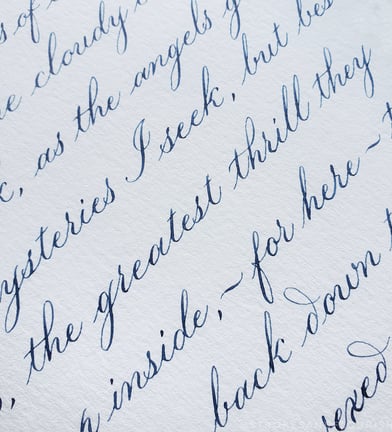 s of
cloudy
as the angels
mysteries I seek, but bes
, the greatest thrill they
inside,~ for here ~
back down
vexed